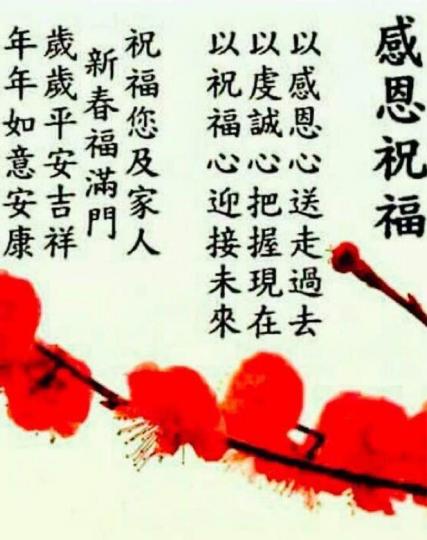 感恩祝福
以感恩心送走過去
以虔誠心把握現在
以祝福心迎接未來
祝福您及家人
新春福滿門
歲歲平安吉祥
年年如意安康